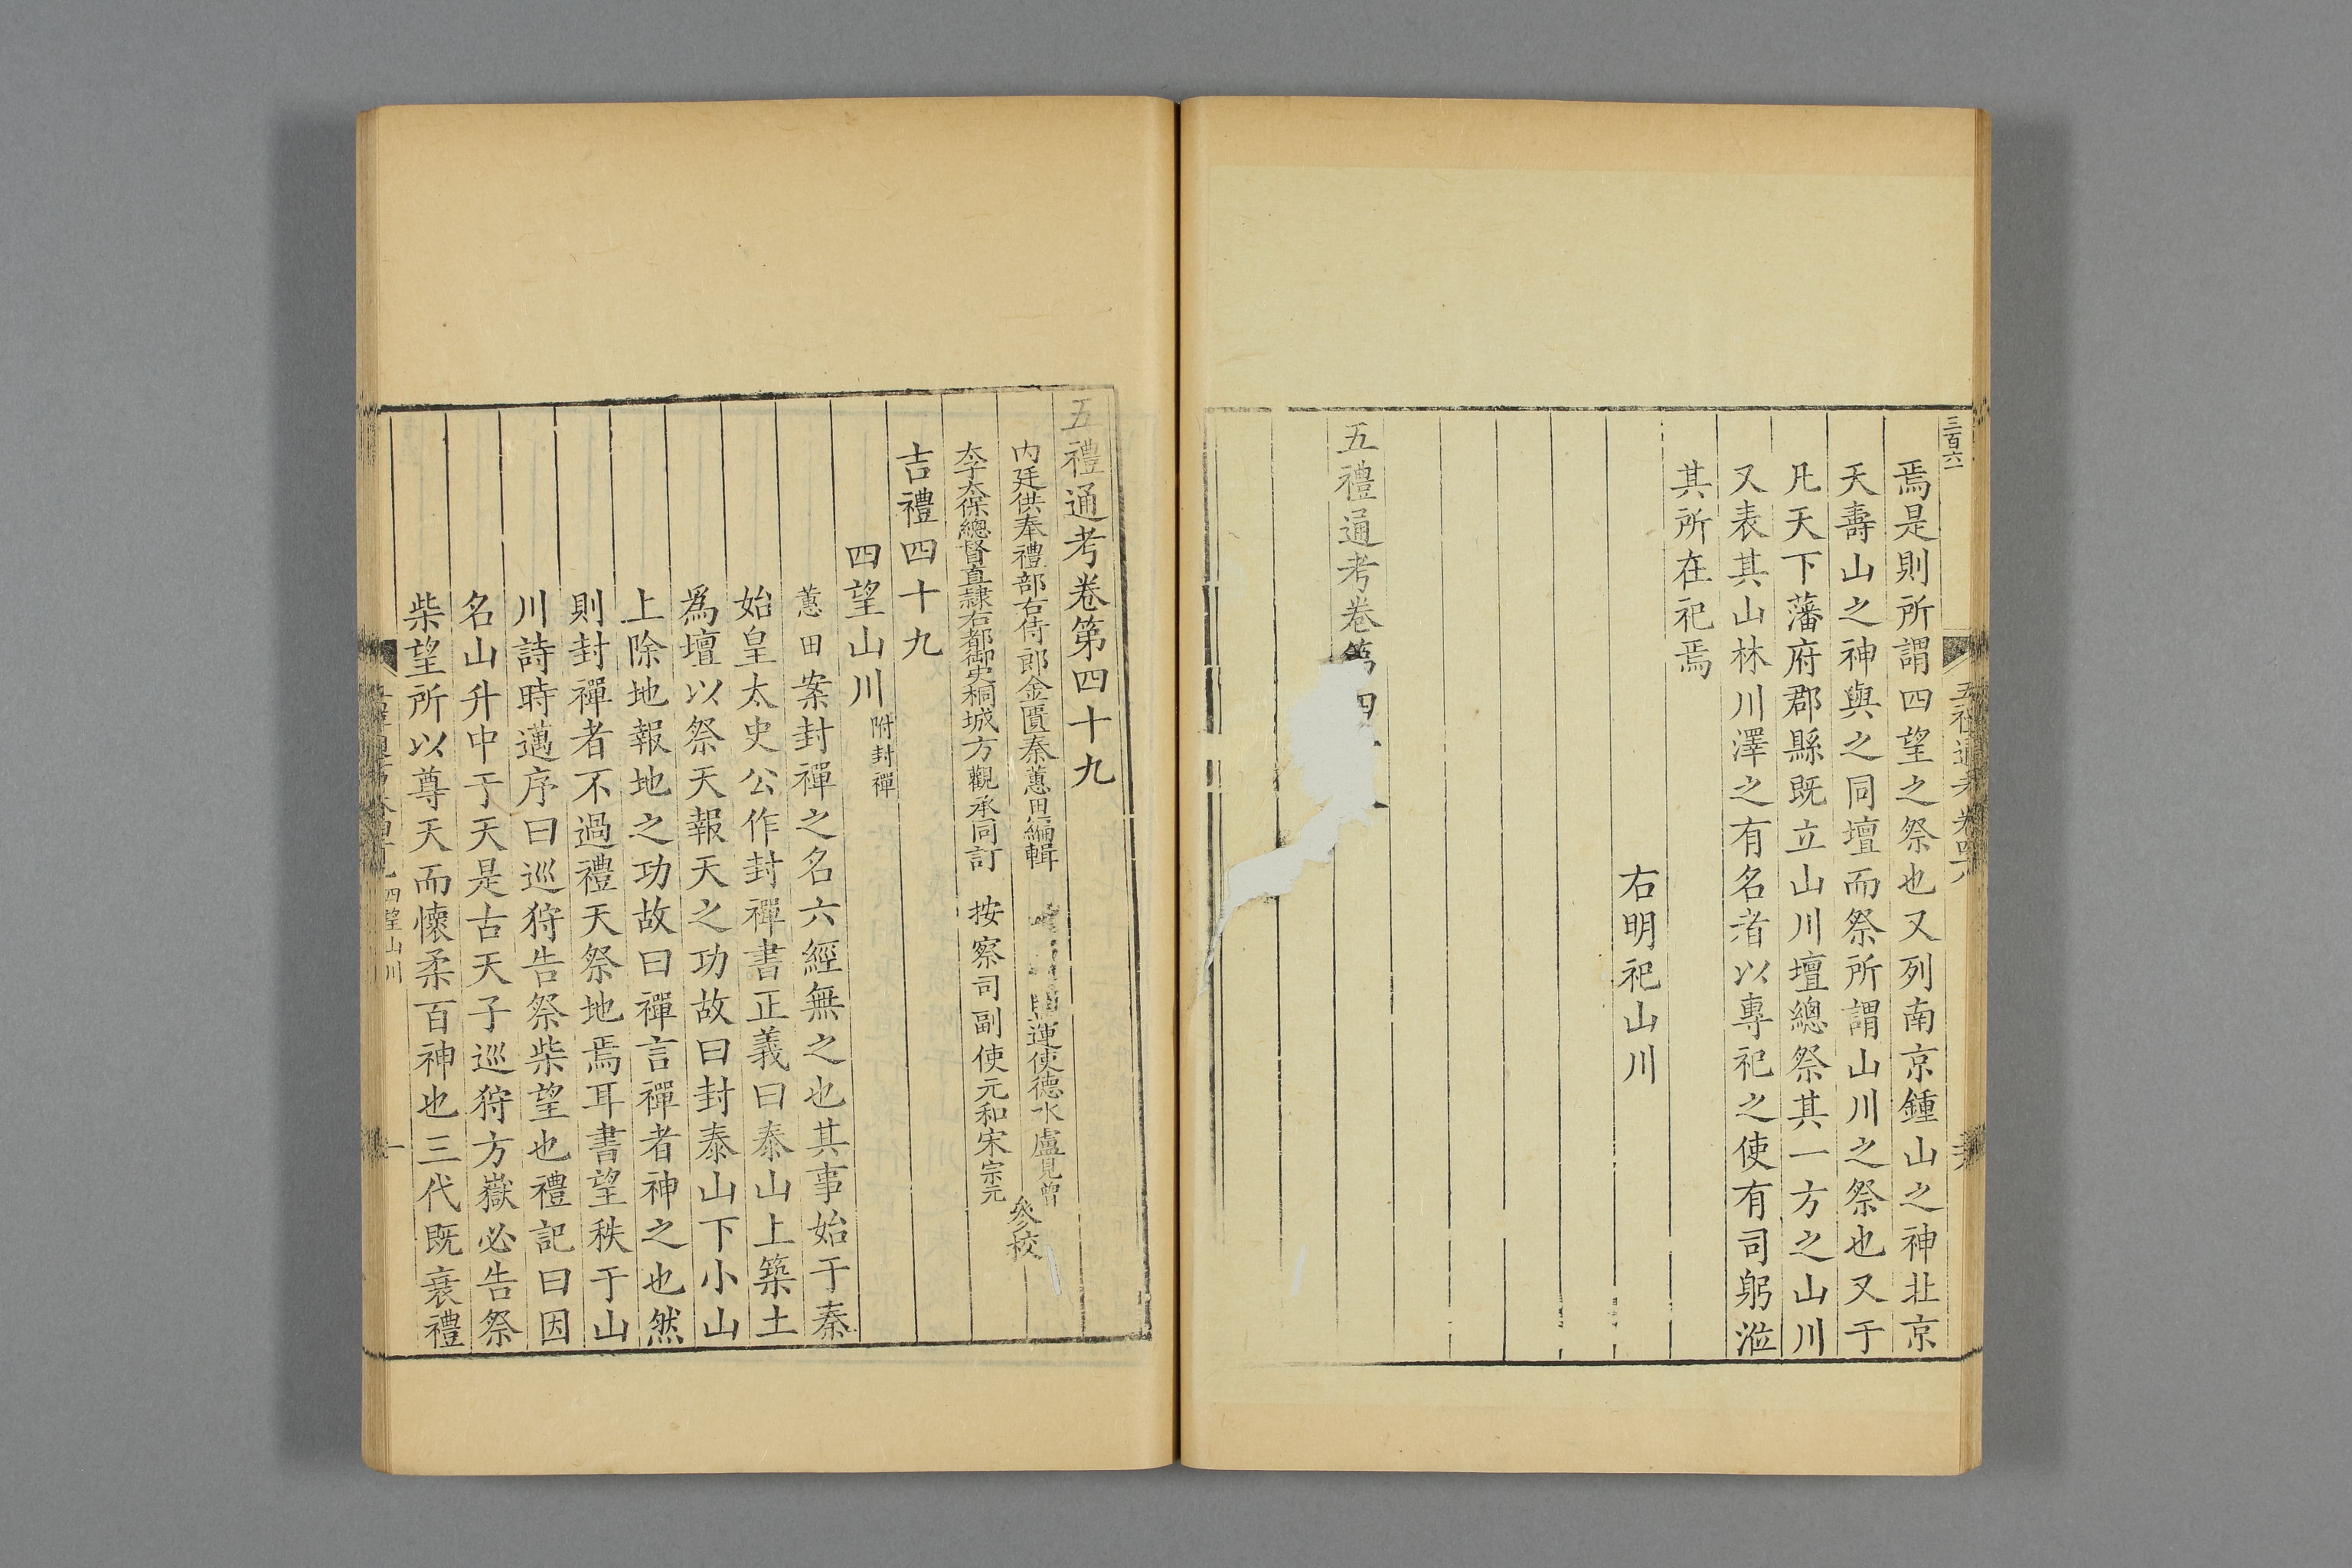 三百六一
焉是則所謂四望之祭也又列南京鍾山之神北京
天壽山之神與之同壇而祭所謂山川之祭也又于
凡天下藩府郡縣既立山川壇總祭其一方之山川
又表其山林川澤之有名者以專祀之使有司躬涖
其所在祀焉
右明祀山川
五禮通考卷第四
五禮通考卷第四十九
内廷供奉禮部右侍郎金匱秦蕙田編輯
運使德水盧見曾
太子太保總督直隸右都御史桐城方觀承同訂
按察司副使元和宋宗元
參校
吉禮四十九
四望山川附封禪
蕙田案封禪之名六經無之也其事始于秦
始皇太史公作封禪書正義曰泰山上築土
爲壇以祭天報天之功故曰封泰山下小山
上除地報地之功故曰禪言禪者神之也然
則封禪者不過禮天祭地焉耳書望秩于山
川詩時邁序曰巡狩告祭柴望也禮記曰因
名山升中于天是古天子巡狩方嶽必告祭
柴望所以尊天而懷柔百神也三代既衰禮
四望山川
一